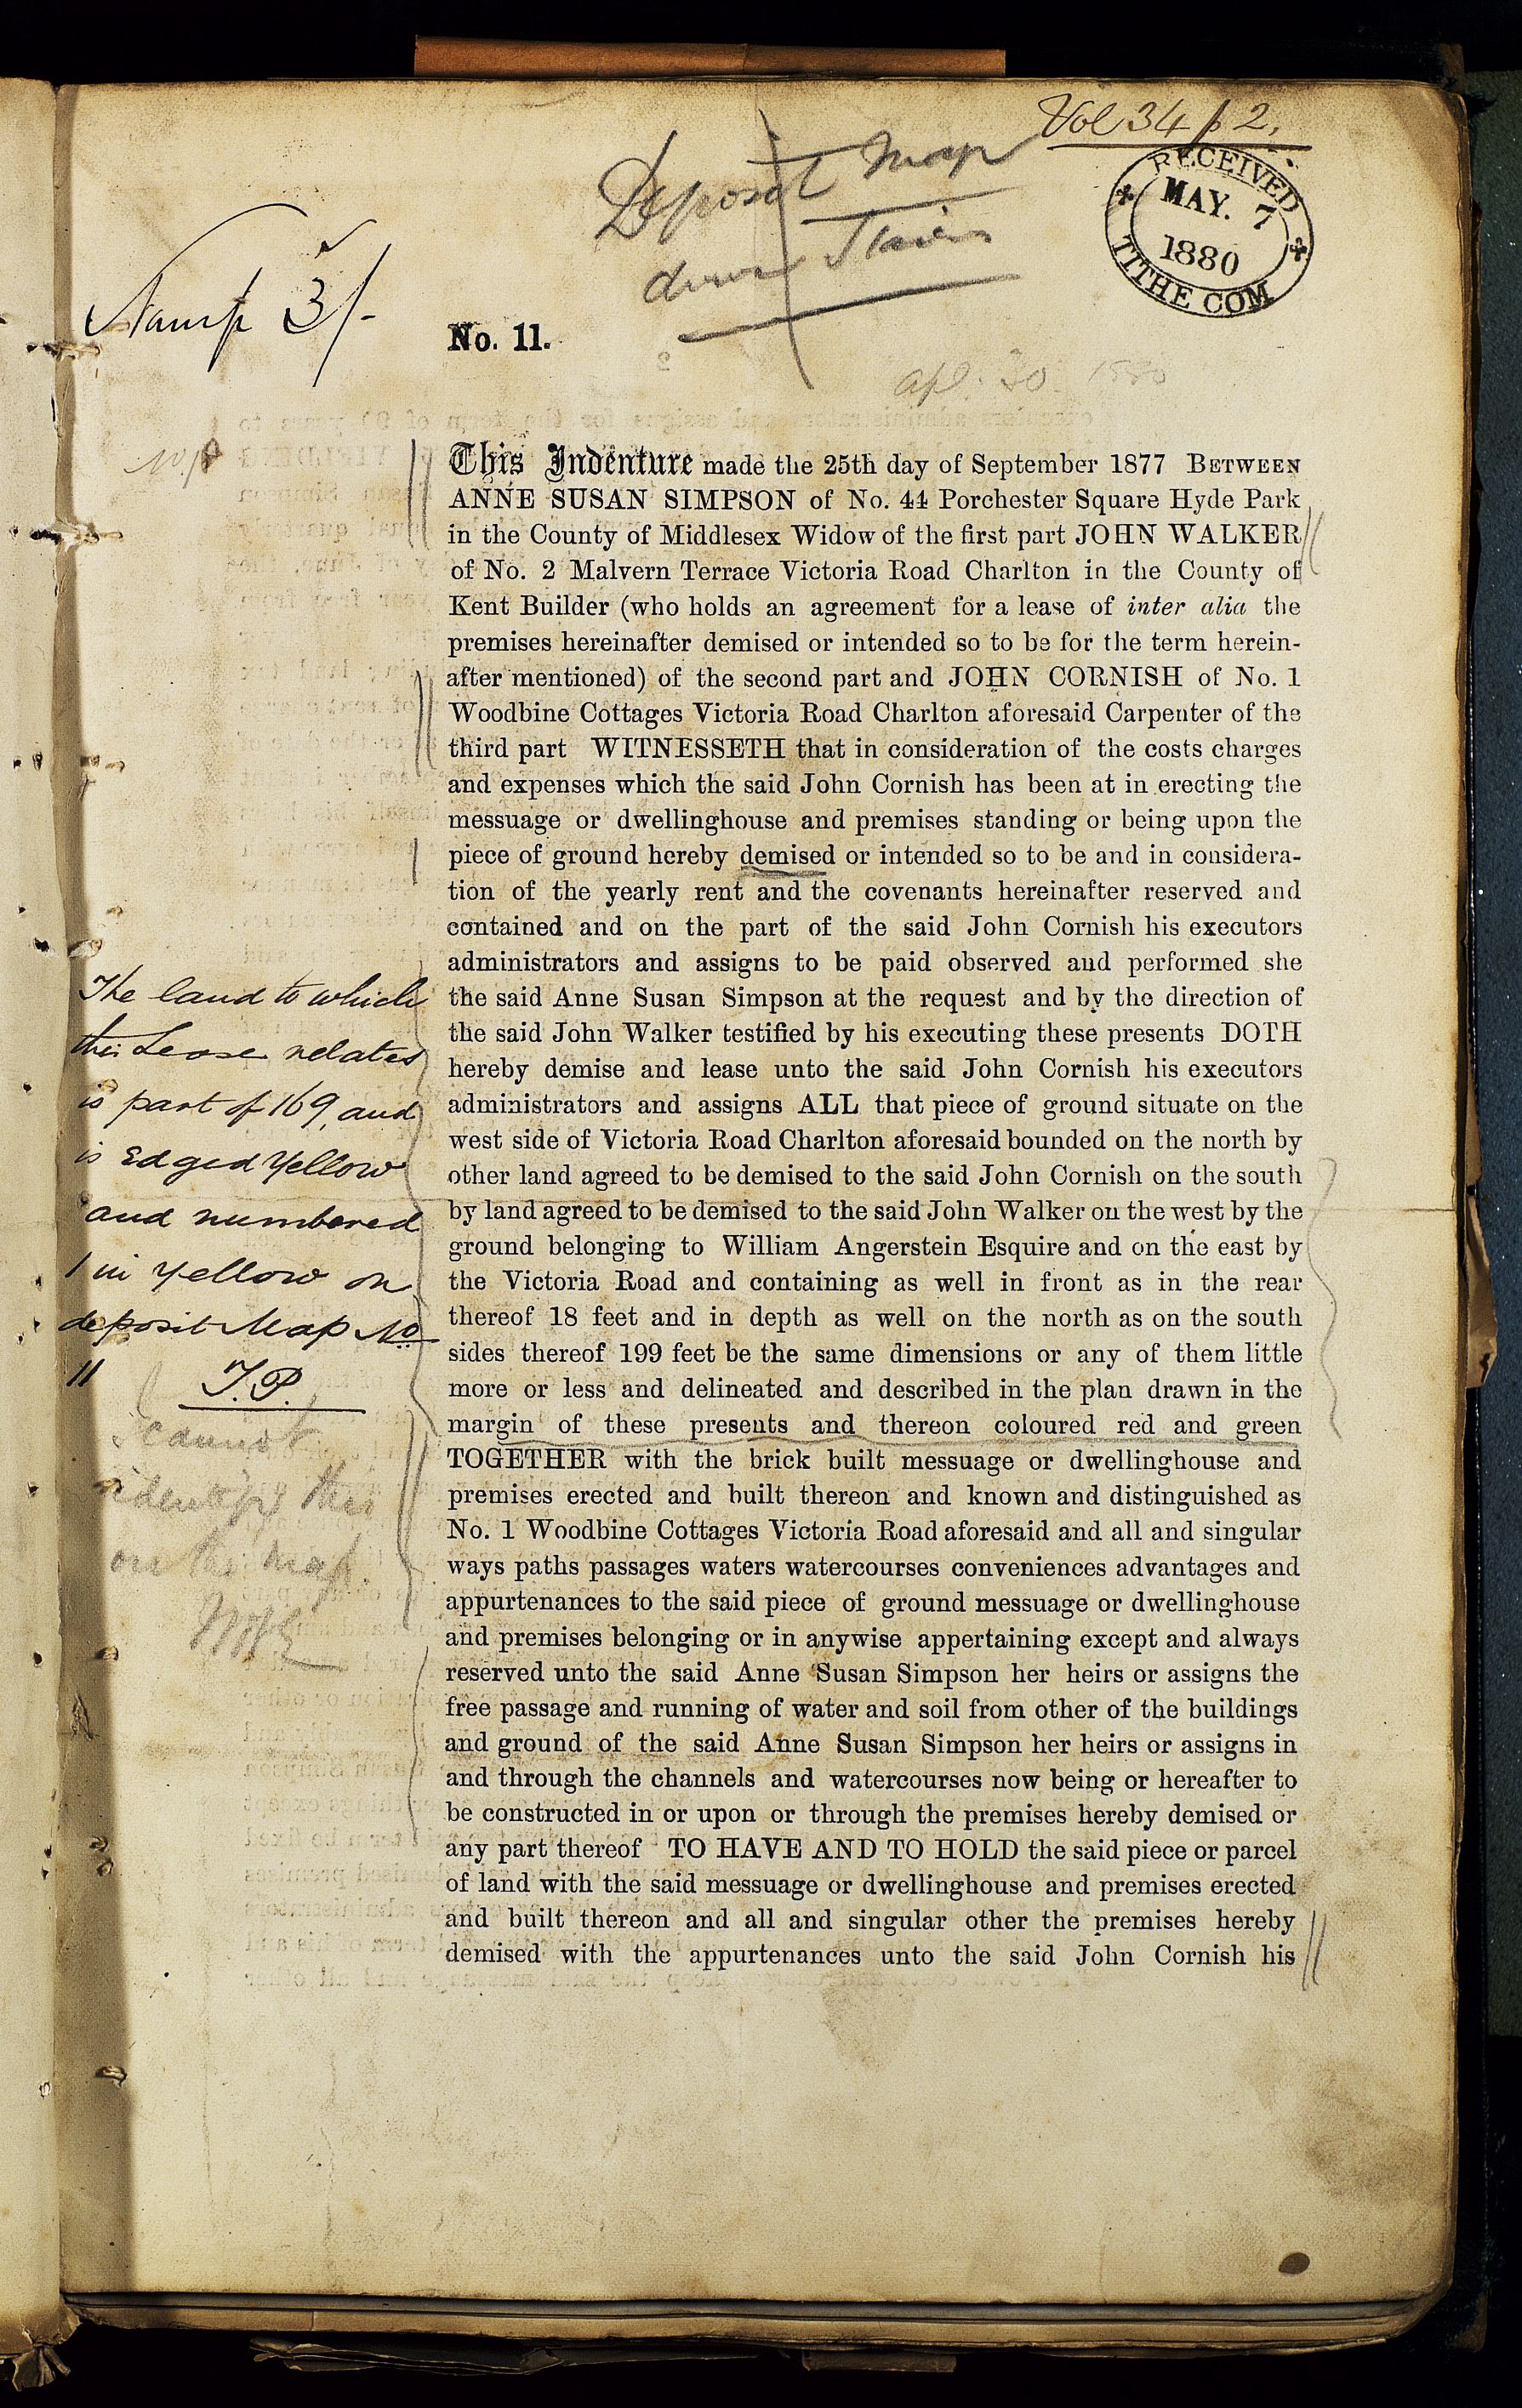 Vol 34 p 2.
Deposit Map
down Stairs
RECEIVED
MAY. 7
1880
TITHE COM
Stamp 3/-
No. 11.
Apl. 30. 1880
This Indenture made the 25th day of September 1877 BETWEEN
ANNE SUSAN SIMPSON of No. 44 Porchester Square Hyde Park
in the County of Middlesex Widow of the first part JOHN WALKER
of No. 2 Malvern Terrace Victoria Road Charlton in the County of
Kent Builder (who holds an agreement for a lease of inter alia the
premises hereinafter demised or intended so to be for the term herein-
after mentioned) of the second part and JOHN CORNISH of No. 1
Woodbine Cottages Victoria Road Charlton aforesaid Carpenter of the
third part WITNESSETH that in consideration of the costs charges
and expenses which the said John Cornish has been at in erecting the
messuage or dwellinghouse and premises standing or being upon the
piece of ground hereby demised or intended so to be and in considera-
tion of the yearly rent and the covenants hereinafter reserved and
contained and on the part of the said John Cornish his executors
administrators and assigns to be paid observed and performed she
the said Anne Susan Simpson at the request and by the direction of
the said John Walker testified by his executing these presents DOTH
hereby demise and lease unto the said John Cornish his executors
administrators and assigns ALL that piece of ground situate on the
west side of Victoria Road Charlton aforesaid bounded on the north by
other land agreed to be demised to the said John Cornish on the south
by land agreed to be demised to the said John Walker on the west by the
ground belonging to William Angerstein Esquire and on the east by
the Victoria Road and containing as well in front as in the rear
thereof 18 feet and in depth as well on the north as on the south
sides thereof 199 feet be the same dimensions or any of them little
more or less and delineated and described in the plan drawn in the
margin of these presents and thereon coloured red and green
TOGETHER with the brick built messuage or dwellinghouse and
premises erected and built thereon and known and distinguished as
No. 1 Woodbine Cottages Victoria Road aforesaid and all and singular
ways paths passages waters watercourses conveniences advantages and
appurtenances to the said piece of ground messuage or dwellinghouse
and premises belonging or in anywise appertaining except and always
reserved unto the said Anne Susan Simpson her heirs or assigns the
free passage and running of water and soil from other of the buildings
and ground of the said Anne Susan Simpson her heirs or assigns in
and through the channels and watercourses now being or hereafter to
be constructed in or upon or through the premises hereby demised or
any part thereof TO HAVE AND TO HOLD the said piece or parcel
of land with the said messuage or dwellinghouse and premises erected
and built thereon and all and singular other the premises hereby
demised with the appurtenances unto the said John Cornish his
The land to which
this Lease relates
is part of 169, and
is Edged Yellow
and numbered
1 in Yellow on
deposit Map No
11
T.P.
I cannot
identify this
on the map.